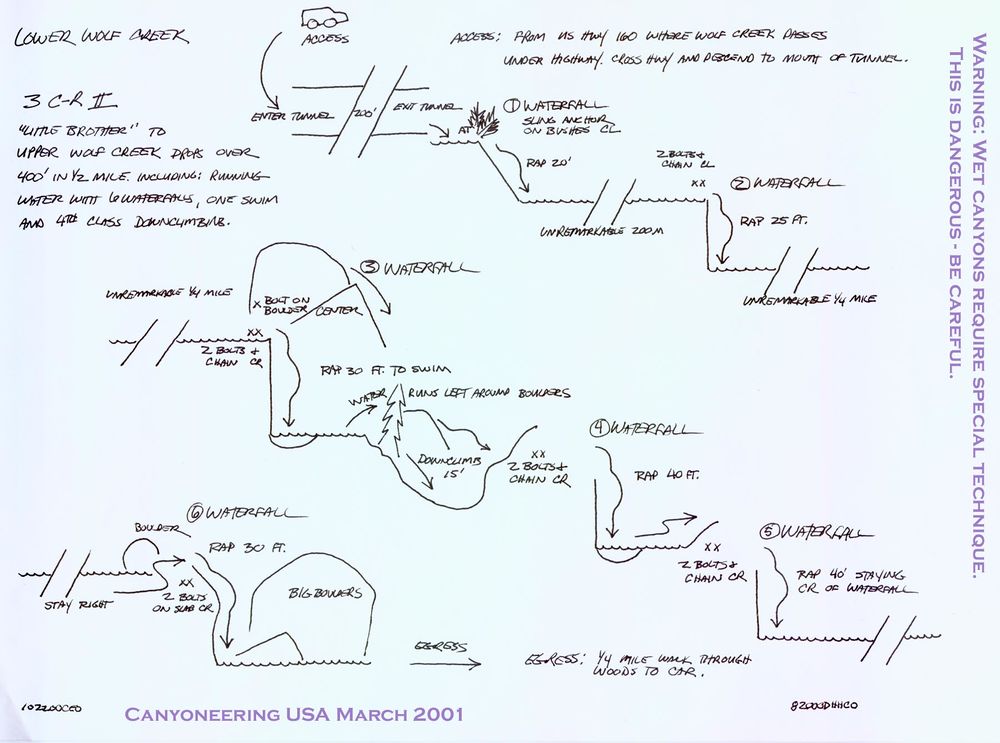 LOWER WOLF CREEK
ACCESS
ACCESS: FROM US HWY 160 WHERE WOLF CREEK PASSES
UNDER HIGHWAY. CROSS HWY AND DESCEND TO MOUTH OF TUNNEL.
3 C-R II
"LITTLE BROTHER" TO
UPPER WOLF CREEK DROPS OVER
400' IN 1/2 MILE. INCLUDING: RUNNING
WATER WITH 6 WATERFALLS, ONE SWIM
AND 4TH CLASS DOWNCLIMBING.
ENTER TUNNEL
200'
EXIT TUNNEL
AT
① WATERFALL
SLING ANCHOR
ON BUSHES CL
RAP 20'
UNREMARKABLE 200M
2 BOLTS &
CHAIN CL
XX
② WATERFALL
RAP 25 FT.
UNREMARKABLE 1/4 MILE
UNREMARKABLE 1/4 MILE
③ WATERFALL
X BOLT ON
BOULDER
CENTER
XX
2 BOLTS &
CHAIN CR
RAP 30 FT. TO SWIM
WATER
RUNS LEFT AROUND BOULDERS
DOWNCLIMB
15'
XX
2 BOLTS &
CHAIN CR
④ WATERFALL
RAP 40 FT.
XX
2 BOLTS &
CHAIN CR
⑤ WATERFALL
RAP 40' STAYING
CR OF WATERFALL
⑥ WATERFALL
BOULDER
RAP 30 FT.
STAY RIGHT
XX
2 BOLTS
ON SLAB CR
BIG BOULDERS
EGRESS
EGRESS: 1/4 MILE WALK THROUGH
WOODS TO CAR.
CANYONEERING USA MARCH 2001
WARNING: WET CANYONS REQUIRE SPECIAL TECHNIQUE.
THIS IS DANGEROUS - BE CAREFUL.